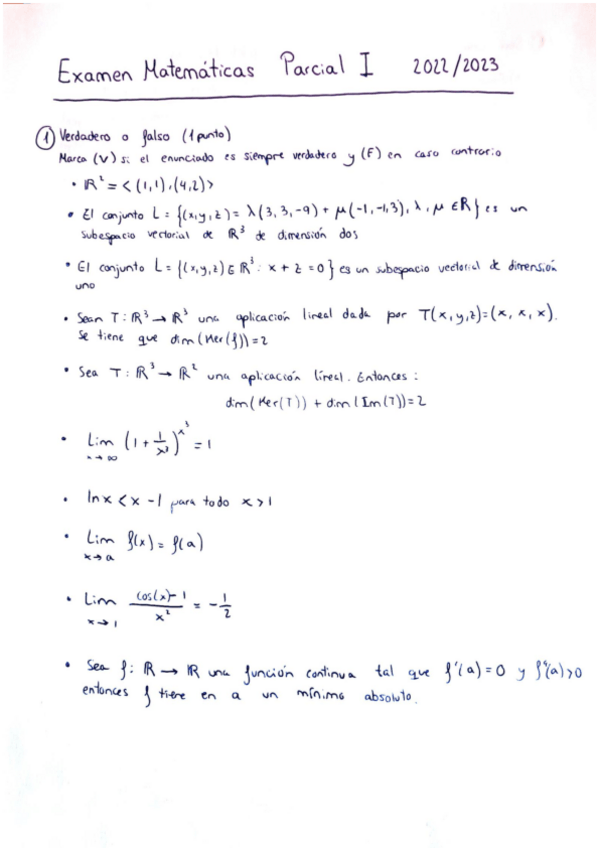 Examen Matemáticas Parcial I 2022/2023
1 Verdadero o falso (1 punto)
Marca (V) si el enunciado es siempre verdadero y (F) en caso contrario
• ℝ² = <(1,1),(4,2)>
• El conjunto L = {(x,y,z) = λ(3,3,-9) + μ(-1,-1,3), λ, μ ∈ ℝ} es un
subespacio vectorial de ℝ³ de dimensión dos
• El conjunto L = {(x,y,z) ∈ ℝ³ : x + z = 0} es un subespacio vectorial de dimensión
uno
• Sean T: ℝ³ → ℝ³ una aplicación lineal dada por T(x,y,z)=(x, x, x).
Se tiene que dim(Ker(f))=2
• Sea T: ℝ³ → ℝ² una aplicación lineal. Entonces:
dim(Ker(T)) + dim(Im(T))=2
• Lim x→∞ (1 + 1/x³)^x³ = 1
• ln x < x - 1 para todo x > 1
• Lim x→a f(x) = f(a)
• Lim x→1 (cos(x)-1)/x² = -1/2
• Sea f: ℝ → ℝ una función continua tal que f'(a)=0 y f''(a)>0
entonces f tiene en a un mínimo absoluto.